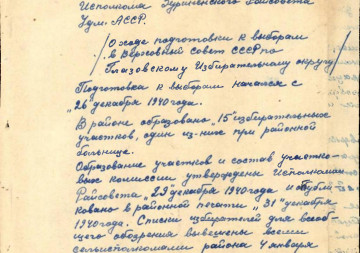 Исполкома Зуринского Райсовета
Удм. АССР.
/О ходе подготовки к выборам
в Верховный совет СССР по
Глазовскому Избирательному округу/
Подготовка к выборам начался с
"26" декабря 1940 года.
В районе образовано "15" избирательных
участков, один из них при районной
больнице.
Образование участков и состав участко-
вых комиссии утверждены Исполкомам
Райсовета "29" декабря 1940 года и опубли
ковано в районной печати "31" декабря
1940 года. Списки избирателей для всеоб
щего обозрения вывешены всеми
сельисполкомами района 4 января